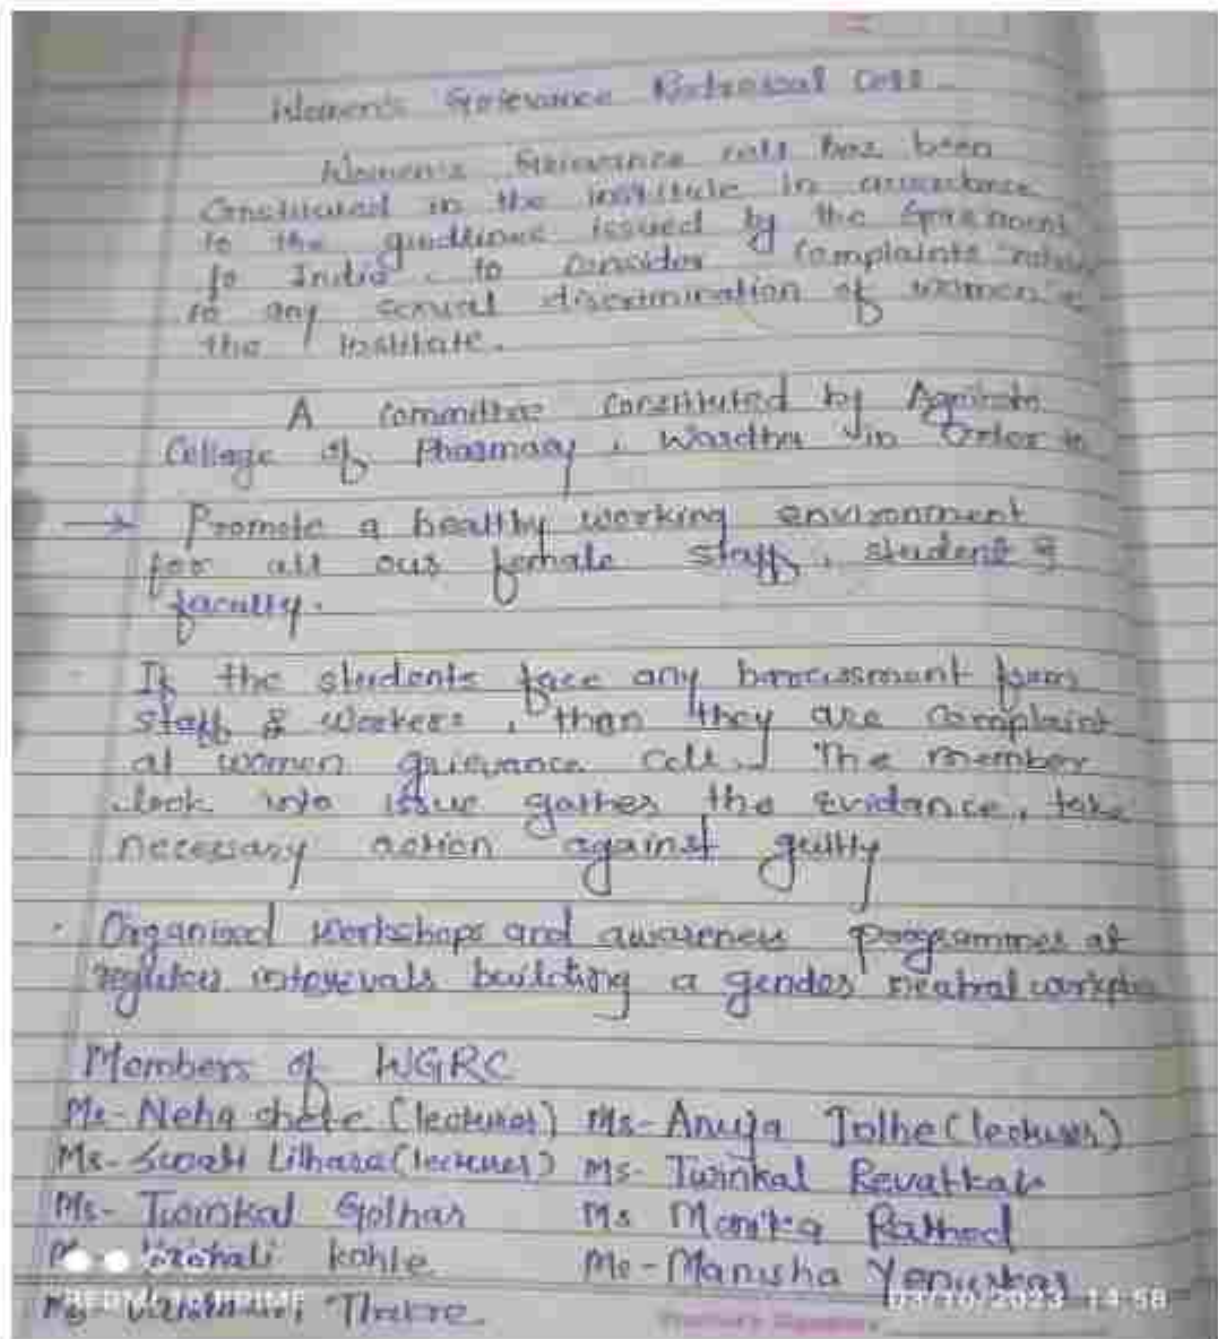 Women's Grievance Redressal Cell
Women's Grievance cell has been
Constituted in the institute in accordance
to the guidlines issued by the
to India, to consider complaints
to any sexual discrimination of women's
the institute.
A committee constituted by Agnihotri
College of Pharmacy, Wardha in Order to
→ Promote a healthy working environment
for all our female staff, student &
faculty.
If the students face any harassment from
staff & workers, than they are complaint
at women grievance cell. The member
look into issue gather the evidance, take
necessary action against guilty
· Organised workshops and awareness programmes at
regular intervals building a gender neatral
Members of WGRC
Ms- Neha chele (lecturer) Ms- Anuja Tolhe (lecturer)
Ms- Swati Lilhare (lecturer) Ms- Twinkal Revatkar
Ms- Twinkal Golhar Ms Monika Rathod
kahle Ms- Manisha Yenurkar
Ms- Thatre
03/10/2023 14:58